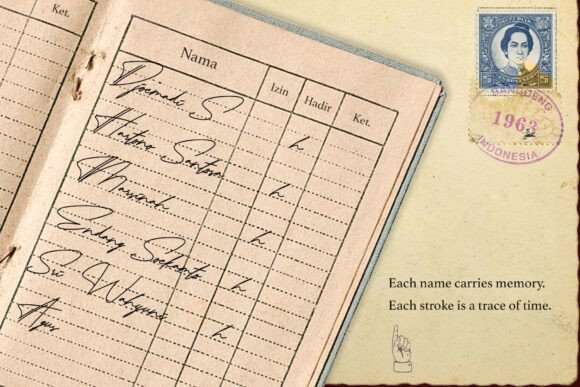 Ket.
Nama Izin Hadir Ket.
Djoemadi S h
Hartono Santosa h
Marsinah h
Endang Soekanto h
Sri Wahyuni h
Agus
1963
INDONESIA
Each name carries memory.
Each stroke is a trace of time.